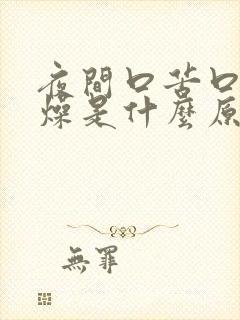 夜間口苦口
燥是什麼原
無罪